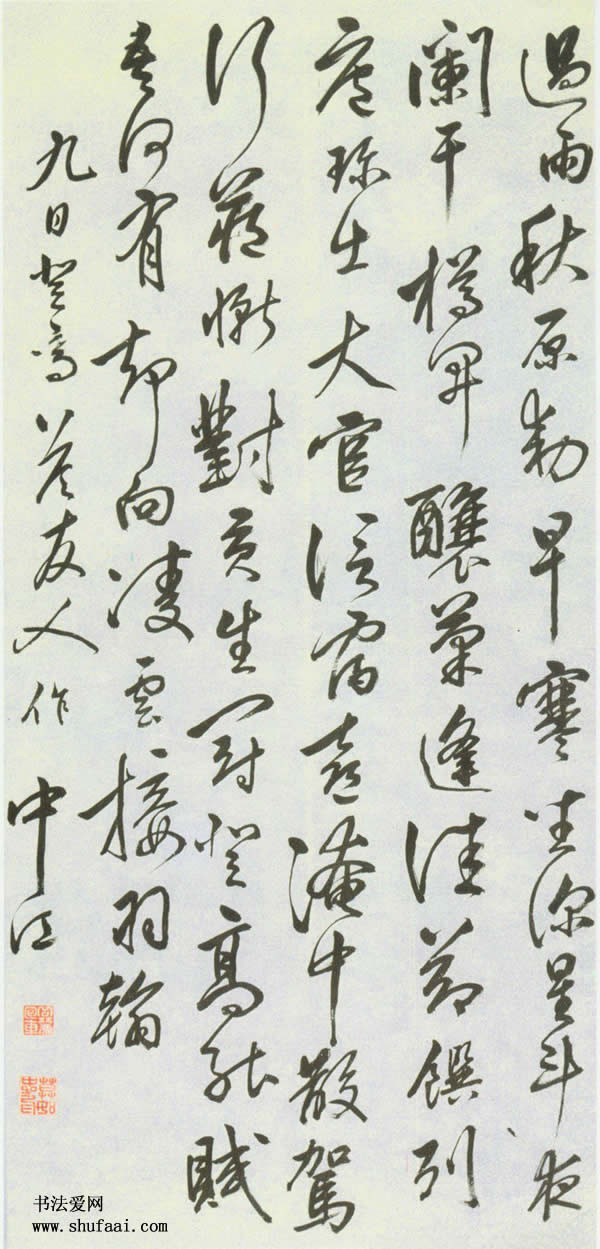 過雨秋原勅早寒坐深星斗夜
闌干樽開釀菊逢佳節饌列
庖珍出大官信宿喜淹中散駕
行藏慚對貢生冠登高能賦
吾何有却向凌雲接羽翰
九日登高答友人作 中江
书法爱网
www.shufaai.com